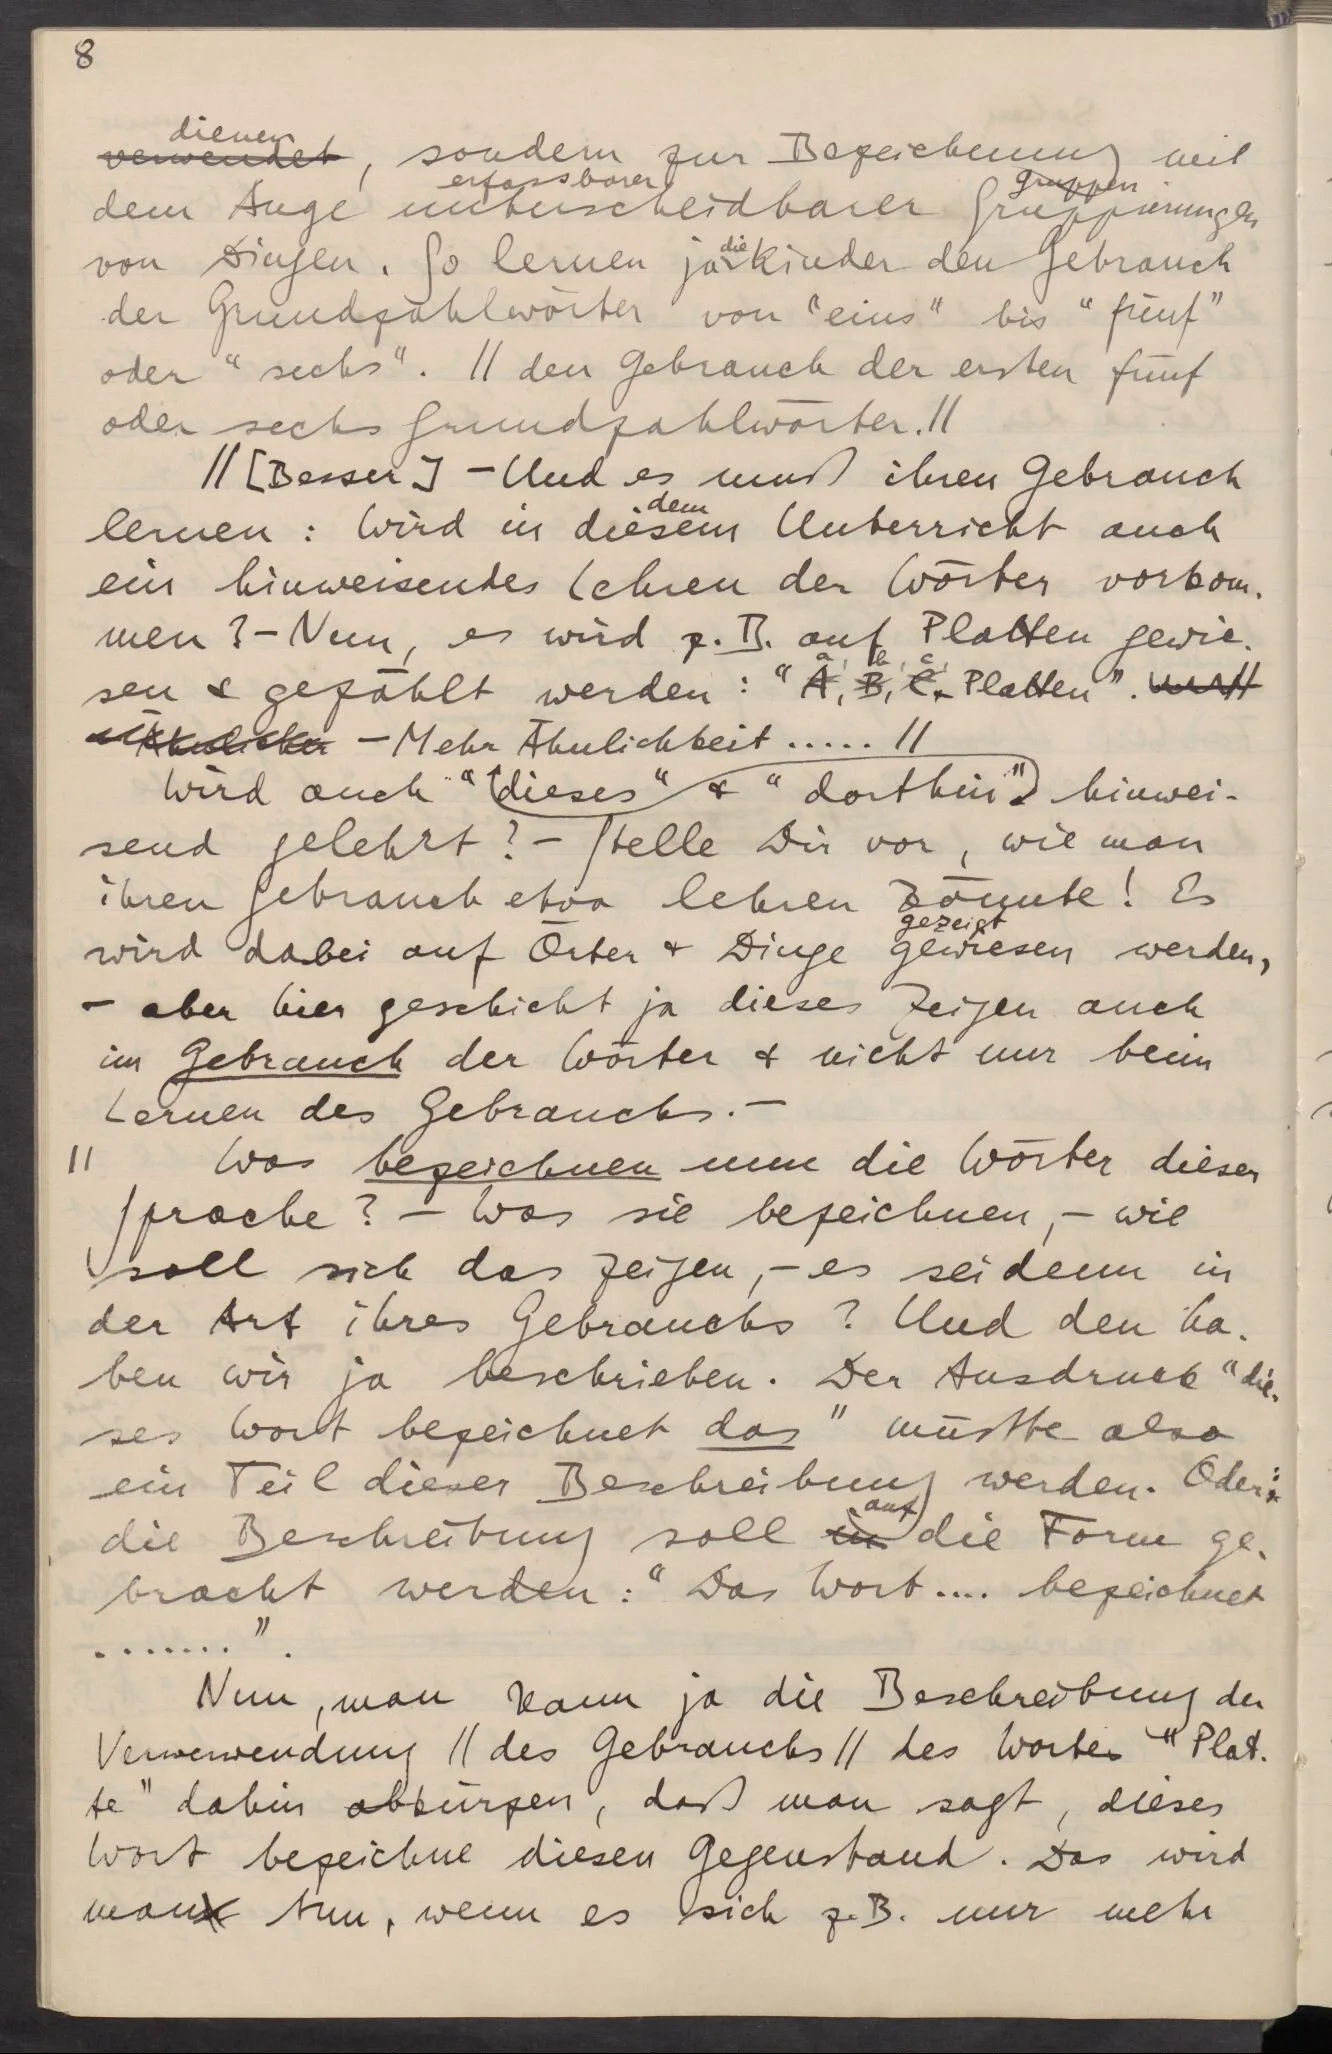 8
dienen
verwendet, sondern zur Bezeichnung mit
erfassbarer gruppen
dem Auge unterscheidbarer Gruppierungen
von Dingen. So lernen ja die Kinder den Gebrauch
der Grundzahlwörter von "eins" bis "fünf"
oder "sechs". // den Gebrauch der ersten fünf
oder sechs Grundzahlwörter. //
// [Besser] – Und es muß ihren Gebrauch
dem
lernen: Wird in diesem Unterricht auch
ein hinweisendes Lehren der Wörter vorkom-
men? – Nun, es wird z.B. auf Platten gewie-
a, b, c,
sen & gezählt werden: "A, B, C, Platten".
Ähnlicher – Mehr Ähnlichkeit ..... //
Wird auch "dieses" & "dorthin" hinwei-
send gelehrt? – Stelle Dir vor, wie man
ihren Gebrauch etwa lehren könnte! Es
gezeigt
wird dabei auf Örter & Dinge gewiesen werden,
– aber hier geschieht ja dieses Zeigen auch
im Gebrauch der Wörter & nicht nur beim
Lernen des Gebrauchs. –
// Was bezeichnen nun die Wörter dieser
Sprache? – Was sie bezeichnen, – wie
soll sich das zeigen, – es sei denn in
der Art ihres Gebrauchs? Und den ha-
ben wir ja beschrieben. Der Ausdruck "die-
ses Wort bezeichnet das" müsste also
ein Teil dieser Beschreibung werden. Oder:
auf
die Beschreibung soll in die Form ge-
bracht werden: "Das Wort .... bezeichnet
.......".
Nun, man kann ja die Beschreibung der
Verwerwendung // des Gebrauchs // des Wortes "Plat-
te" dahin abkürzen, daß man sagt, dieses
Wort bezeichne diesen Gegenstand. Das wird
man tun, wenn es sich z.B. nur mehr